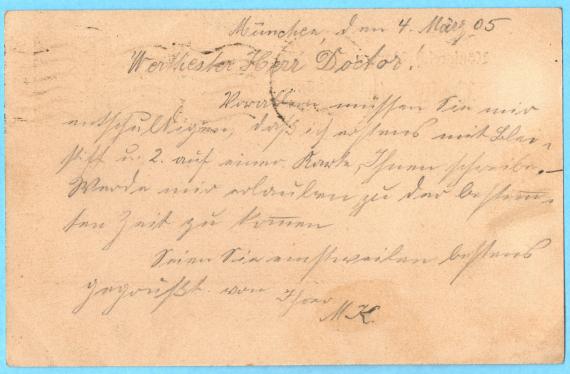 München, den 4. März 05
Werthester Herr Doctor!
Vor allem müssen Sie mir
entschuldigen, daß ich erstens mit Blei-
stift u. 2. auf einer Karte, Ihnen schreibe. –
Werde mir erlauben zu der bestimm-
ten Zeit zu kommen
Seien Sie einstweilen bestens
gegrüßt von Ihrer
M K.